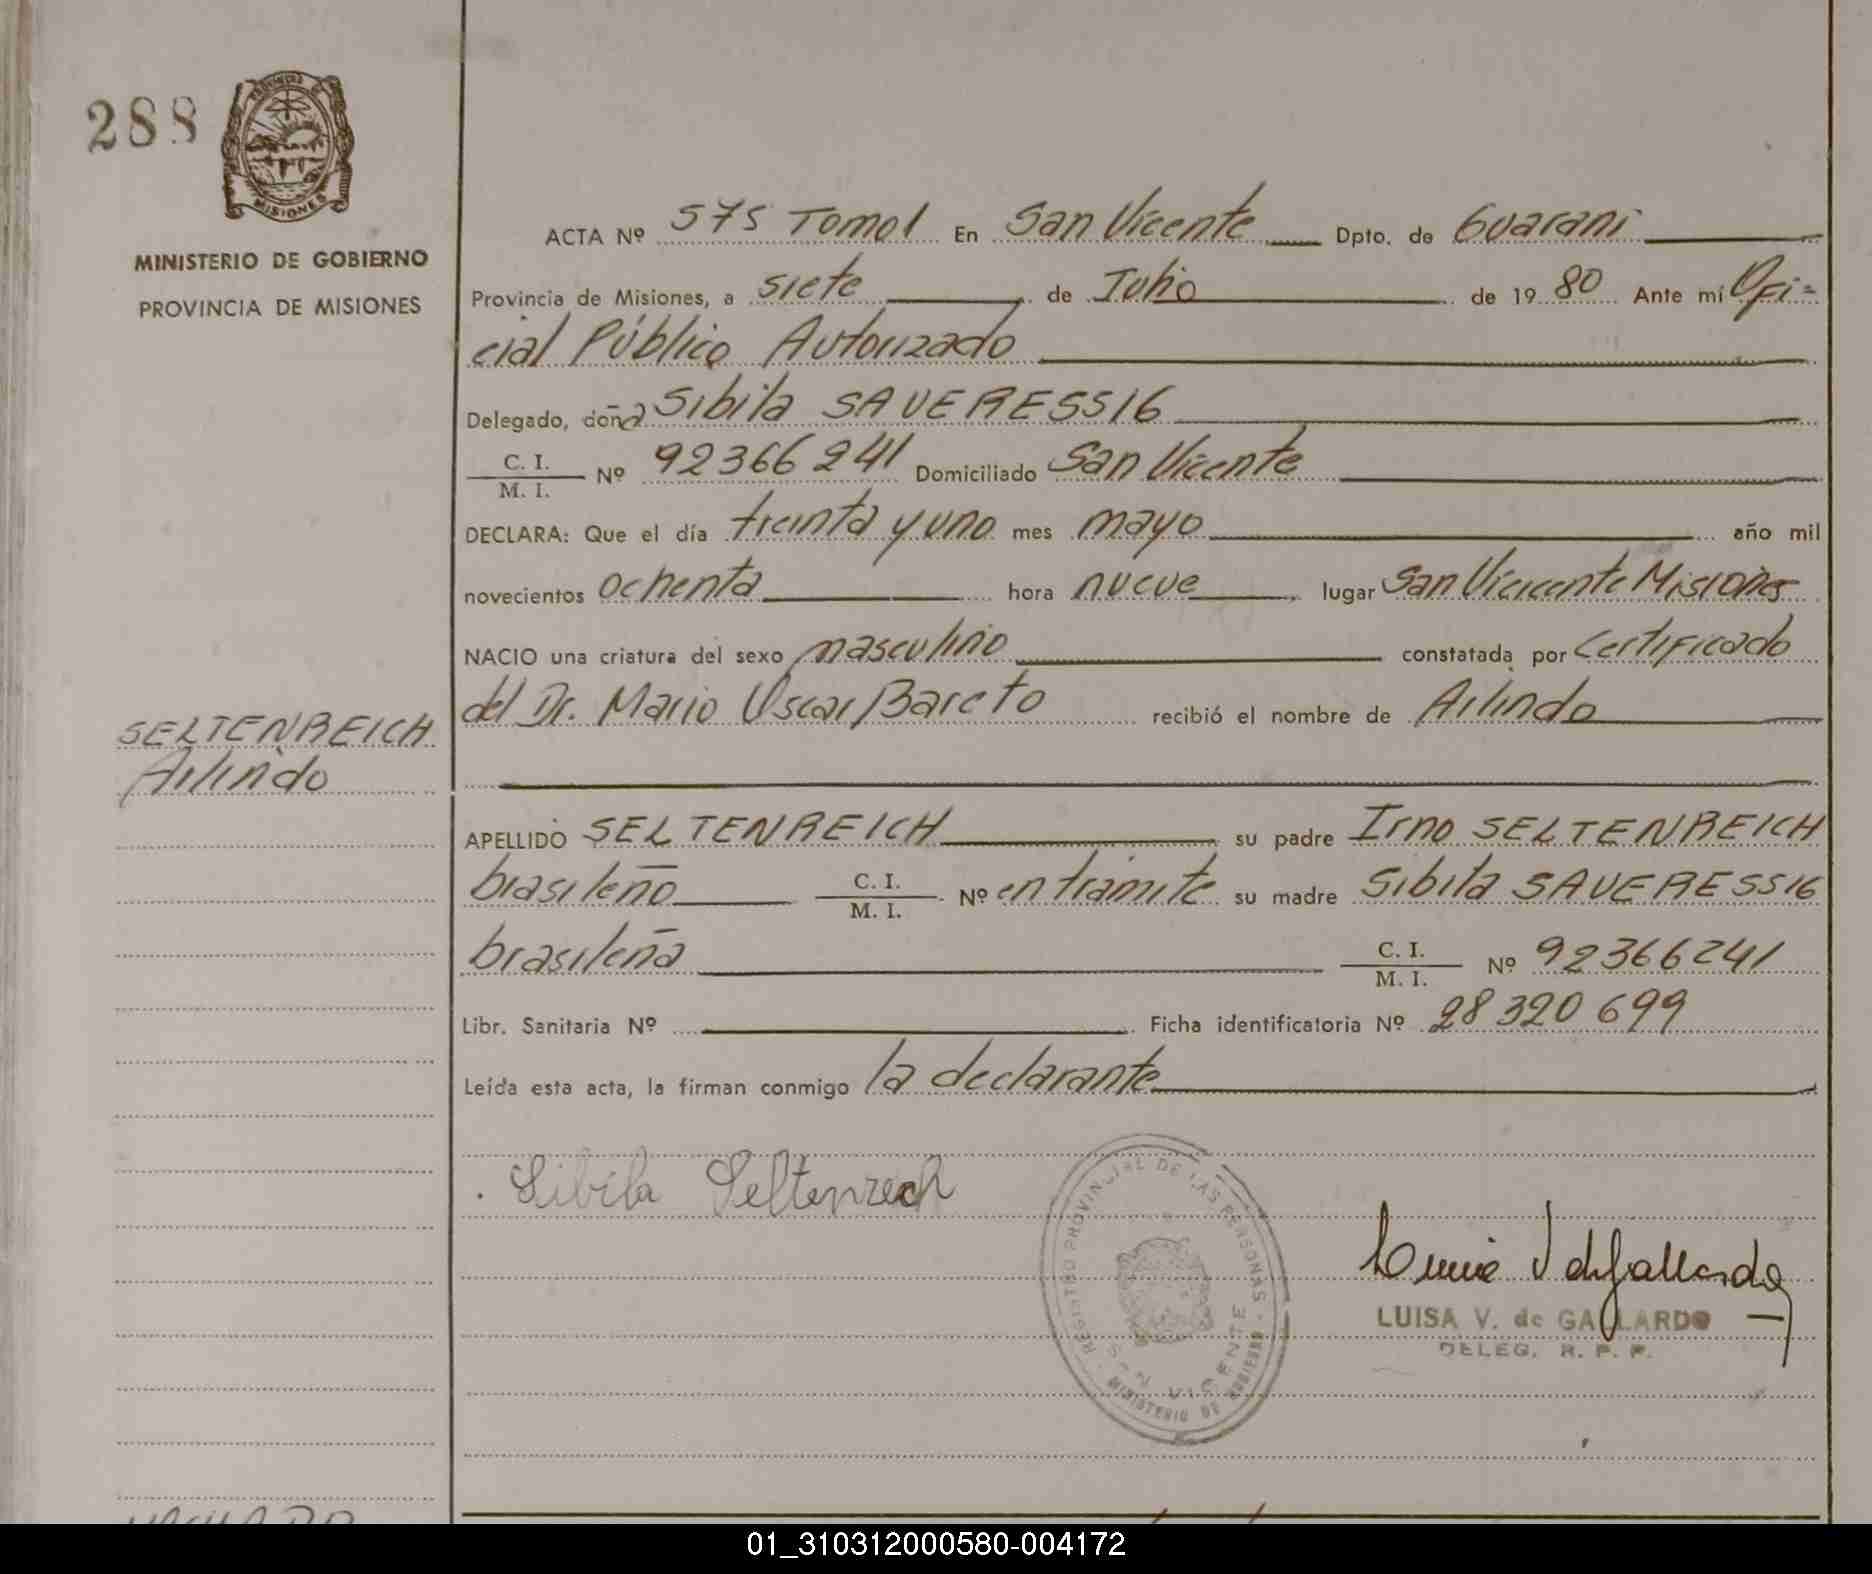 288
PROVINCIA DE
MISIONES
MINISTERIO DE GOBIERNO
PROVINCIA DE MISIONES
ACTA Nº 575 Tomo I En San Vicente Dpto. de Guarani
Provincia de Misiones, a siete de Julio de 1980 Ante mí Ofi=
cial Público Autorizado
Delegado, doña Sibila SAUERESSIG
C. I. / M. I. Nº 92366241 Domiciliado San Vicente
DECLARA: Que el día treinta y uno mes mayo año mil
novecientos ochenta hora nueve lugar San Vicicente Misiones
NACIO una criatura del sexo masculino constatada por Certificado
del Dr. Mario Oscar Bareto recibió el nombre de Arlindo
SELTENREICH
Arlindo
APELLIDO SELTENREICH su padre Irno SELTENREICH
brasileño C. I. / M. I. Nº en trámite su madre Sibila SAUERESSIG
brasileña C. I. / M. I. Nº 92366241
Libr. Sanitaria Nº Ficha identificatoria Nº 28320699
Leída esta acta, la firman conmigo la declarante
Sibila Seltenrech
REGISTRO PROVINCIAL DE LAS PERSONAS
SAN VICENTE
MINISTERIO DE GOBIERNO
LUISA V. de GALLARDO
DELEG. R. P. P.
01_310312000580-004172